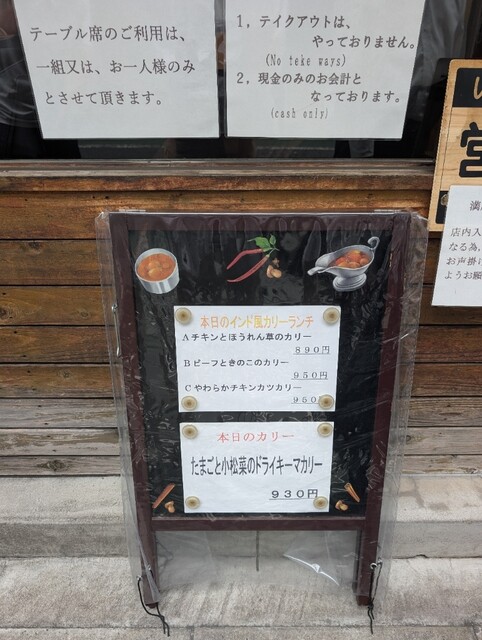 テーブル席のご利用は、
一組又は、お一人様のみ
とさせて頂きます。
1，テイクアウトは、
やっておりません。
(No teke ways)
2，現金のみのお会計と
なっております。
(cash only)
い
営
店内入
なる為,
お声掛け
ようお願
本日のインド風カリーランチ
Aチキンとほうれん草のカリー
890円
Bビーフときのこのカリー
950円
Cやわらかチキンカツカリー
950
本日のカリー
たまごと小松菜のドライキーマカリー
930円